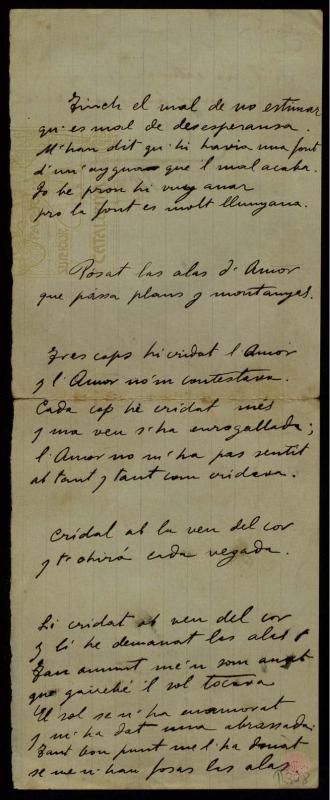 Tinch el mal de no estimar
qu' es mal de desesperansa.
M' han dit qu' hi havia una font
d' un' aygua que 'l mal acaba.
Jo be prou hi vuy anar
pro la font es molt llunyana.
Posat las alas d' Amor
que pássa plans y montanyas.
Tres cops hi cridat l' Amor
y l' Amor no 'm contestava.
Cada cop hè cridat més
y ma veu s' ha enrogallada;
l' Amor no m' ha pas sentit
ab tant y tant com cridava.
Cridal ab la veu del cor
y t' ohirá cada vegada.
Li cridat ab veu del cor
y li he demanat las alas
Tan amunt me 'n som anat
que gairebé 'l sol tocava
El sol se n' ha enamorat
y m' ha dat una abrassada.
Tant bon punt me l' ha donat
se me n' han fosas las alas